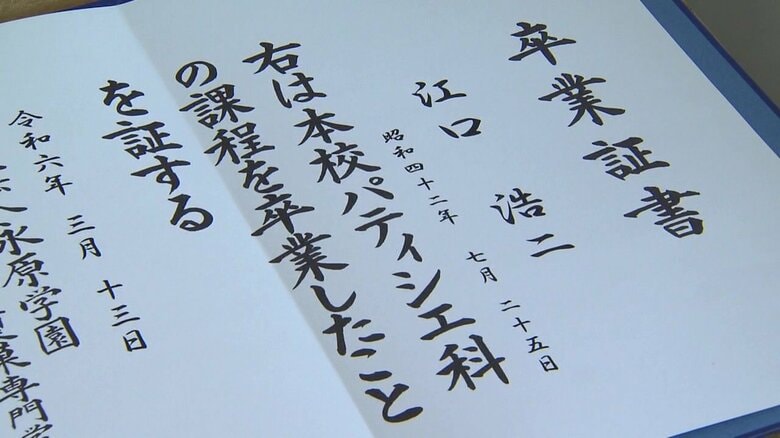 卒業証書
江口 浩二
昭和四十二年 七月 二十五日
右は本校パティシエ科
の課程を卒業したこと
を証する
令和六年 三月 十三日
人永原学園
菓専門学